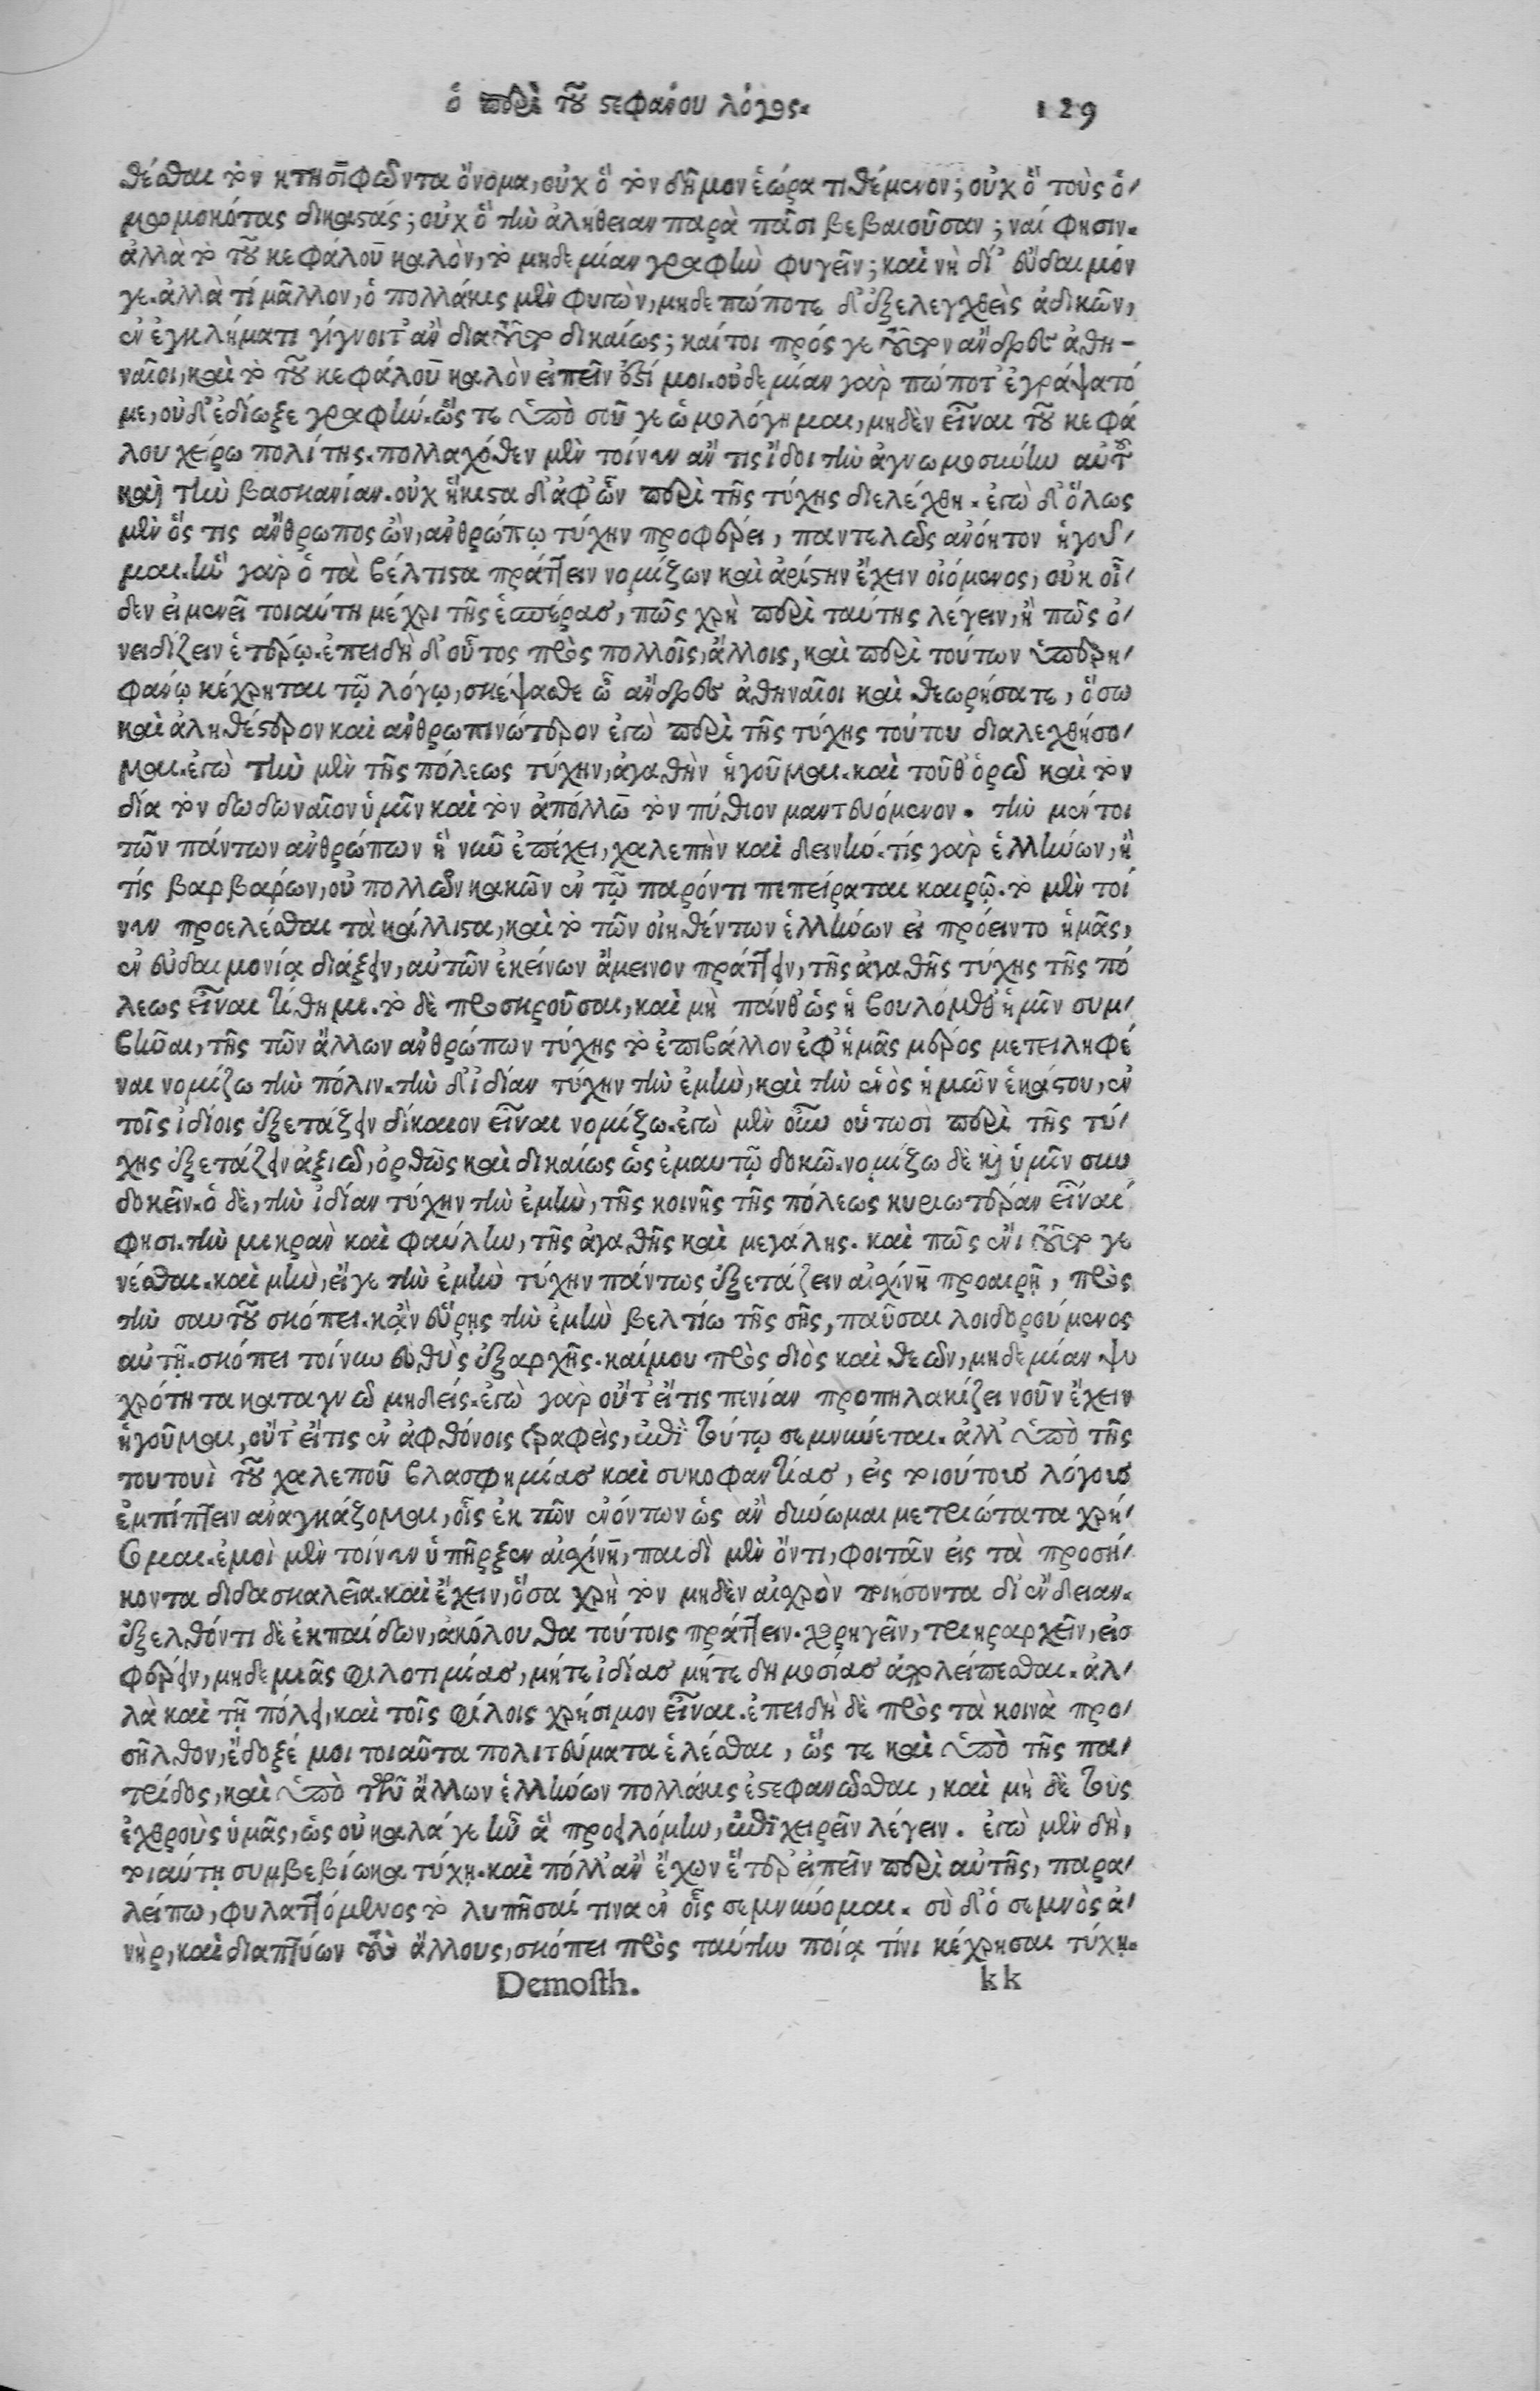 ὁ περὶ τοῦ στεφάνου λόγος. 129
θέσθαι τὸν κτησιφῶντα ὄνομα, οὐχ ὃ τὸν δῆμον ἑώρα τιθέμενον; οὐχ ὃ τοὺς ὀ-
μωμοκότας δικαστάς; οὐχ ὃ τὴν ἀλήθειαν παρὰ πᾶσι βεβαιοῦσαν; ναί φησιν.
ἀλλὰ τὸ τοῦ κεφάλου καλὸν, τὸ μηδεμίαν γραφὴν φυγεῖν; καὶ νὴ δί' εὔδαιμόν
γε. ἀλλὰ τί μᾶλλον, ὁ πολλάκις μὲν φυγὼν, μηδεπώποτε δ' ἐξελεγχθεὶς ἀδικῶν,
ἐν ἐγκλήματι γίγνοιτ' ἂν διὰ τοῦτο δικαίως; καίτοι πρός γε τοῦτον ἄνδρες ἀθη-
ναῖοι, καὶ τὸ τοῦ κεφάλου καλὸν εἰπεῖν ἔστί μοι. οὐδεμίαν γὰρ πώποτ' ἐγράψατό
με, οὐδ' ἐδίωξε γραφήν. ὥς τε ὑπὸ σοῦ γε ὡμολόγημαι, μηδὲν εἶναι τοῦ κεφά
λου χείρω πολίτης. πολλαχόθεν μὲν τοίνυν ἄν τις ἴδοι τὴν ἀγνωμοσύνην αὐτοῦ
καὶ τὴν βασκανίαν. οὐχ ἥκιστα δ' ἀφ' ὧν περὶ τῆς τύχης διελέχθη. ἐγὼ δ' ὅλως
μὲν ὅς τις ἄνθρωπος ὢν, ἀνθρώπῳ τύχην προφέρει, παντελῶς ἀνόητον ἡγοῦ-
μαι. ἣν γὰρ ὁ τὰ βέλτιστα πράττειν νομίζων καὶ ἀρίστην ἔχειν οἰόμενος, οὐκ οἶ-
δεν εἰ μενεῖ τοιαύτη μέχρι τῆς ἑσπέρας, πῶς χρὴ περὶ ταύτης λέγειν, ἢ πῶς ὀ-
νειδίζειν ἑτέρῳ. ἐπειδὴ δ' οὗτος πρὸς πολλοῖς, ἄλλοις, καὶ περὶ τούτων ὑπερη-
φανῷ κέχρηται τῷ λόγῳ, σκέψασθε ὦ ἄνδρες ἀθηναῖοι καὶ θεωρήσατε, ὅσῳ
καὶ ἀληθέστερον καὶ ἀνθρωπινώτερον ἐγὼ περὶ τῆς τύχης τούτου διαλεχθήσο-
μαι. ἐγὼ τὴν μὲν τῆς πόλεως τύχην, ἀγαθὴν ἡγοῦμαι. καὶ τοῦθ' ὁρῶ καὶ τὸν
δία τὸν δωδωναῖον ὑμῖν καὶ τὸν ἀπόλλω τὸν πύθιον μαντευόμενον. τὴν μέντοι
τῶν πάντων ἀνθρώπων ἣ νῦν ἐπέχει, χαλεπὴν καὶ δεινήν. τίς γὰρ ἑλλήνων, ἢ
τίς βαρβάρων, οὐ πολλῶν κακῶν ἐν τῷ παρόντι πεπείραται καιρῷ. τὸ μὲν τοί
νυν προελέσθαι τὰ κάλλιστα, καὶ τὸ τῶν οἰηθέντων ἑλλήνων εἰ πρόειντο ἡμᾶς,
ἐν εὐδαιμονίᾳ διάξειν, αὐτῶν ἐκείνων ἄμεινον πράττειν, τῆς ἀγαθῆς τύχης τῆς πό
λεως εἶναι τίθημι. τὸ δὲ προσκροῦσαι, καὶ μὴ πάνθ' ὡς ἠβουλόμεθ' ἡμῖν συμ-
βῆναι, τῆς τῶν ἄλλων ἀνθρώπων τύχης τὸ ἐπιβάλλον ἐφ' ἡμᾶς μέρος μετειληφέ
ναι νομίζω τὴν πόλιν. τὴν δ' ἰδίαν τύχην τὴν ἐμὴν, καὶ τὴν ἑνὸς ἡμῶν ἑκάστου, ἐν
τοῖς ἰδίοις ἐξετάζειν δίκαιον εἶναι νομίζω. ἐγὼ μὲν οὖν οὑτωσὶ περὶ τῆς τύ-
χης ἐξετάζειν ἀξιῶ, ὀρθῶς καὶ δικαίως ὡς ἐμαυτῷ δοκῶ. νομίζω δὲ καὶ ὑμῖν συν
δοκεῖν. ὁ δὲ, τὴν ἰδίαν τύχην τὴν ἐμὴν, τῆς κοινῆς τῆς πόλεως κυριωτέραν εἶναί
φησι. τὴν μικρὰν καὶ φαύλην, τῆς ἀγαθῆς καὶ μεγάλης. καὶ πῶς ἔνι τοῦτο γε
νέσθαι. καὶ μὴν, εἴγε τὴν ἐμὴν τύχην πάντως ἐξετάζειν αἰσχίνη προαιρῇ, πρὸς
τὴν σαυτοῦ σκόπει. κἂν εὕρῃς τὴν ἐμὴν βελτίω τῆς σῆς, παῦσαι λοιδορούμενος
αὐτῇ. σκόπει τοίνυν εὐθὺς ἐξαρχῆς. καίμου πρὸς διὸς καὶ θεῶν, μηδεμίαν ψυ
χρότητα καταγνῶ μηδείς. ἐγὼ γὰρ οὔτ' εἴτις πενίαν προπηλακίζει νοῦν ἔχειν
ἡγοῦμαι, οὔτ' εἴτις ἐν ἀφθόνοις τραφεὶς, ἐπὶ τούτῳ σεμνύνεται. ἀλλ' ὑπὸ τῆς
τουτουὶ τοῦ χαλεποῦ βλασφημίας καὶ συκοφαντίας, εἰς τοιούτους λόγους
ἐμπίπτειν ἀναγκάζομαι, οἷς ἐκ τῶν ἐνόντων ὡς ἂν δύνωμαι μετριώτατα χρή-
σομαι. ἐμοὶ μὲν τοίνυν ὑπῆρξεν αἰσχίνη, παιδὶ μὲν ὄντι, φοιτᾶν εἰς τὰ προσή-
κοντα διδασκαλεῖα. καὶ ἔχειν, ὅσα χρὴ τὸν μηδὲν αἰσχρὸν ποιήσοντα δι' ἔνδειαν.
ἐξελθόντι δὲ ἐκ παίδων, ἀκόλουθα τούτοις πράττειν. χορηγεῖν, τριηραρχεῖν, εἰσ
φέρειν, μηδεμιᾶς φιλοτιμίας, μήτε ἰδίας μήτε δημοσίας ἀπολείπεσθαι. ἀλ-
λὰ καὶ τῇ πόλει, καὶ τοῖς φίλοις χρήσιμον εἶναι. ἐπειδὴ δὲ πρὸς τὰ κοινὰ προ-
σῆλθον, ἔδοξέ μοι τοιαῦτα πολιτεύματα ἑλέσθαι, ὥς τε καὶ ὑπὸ τῆς πα-
τρίδος, καὶ ὑπὸ τῶν ἄλλων ἑλλήνων πολλάκις ἐστεφανῶσθαι, καὶ μὴ δὲ τοὺς
ἐχθροὺς ὑμᾶς, ὡς οὐ καλά γε ἦν ἃ προειλόμην, ἐπιχειρεῖν λέγειν. ἐγὼ μὲν δὴ,
τοιαύτῃ συμβεβίωκα τύχῃ. καὶ πόλλ' ἂν ἔχων ἕτερ' εἰπεῖν περὶ αὐτῆς, παρα-
λείπω, φυλαττόμενος τὸ λυπῆσαί τινα ἐν οἷς σεμνύνομαι. σὺ δ' ὁ σεμνὸς ἀ-
νὴρ, καὶ διαπτύων τοὺς ἄλλους, σκόπει πρὸς ταύτην ποίᾳ τίνι κέχρησαι τύχῃ.
Demosth. kk